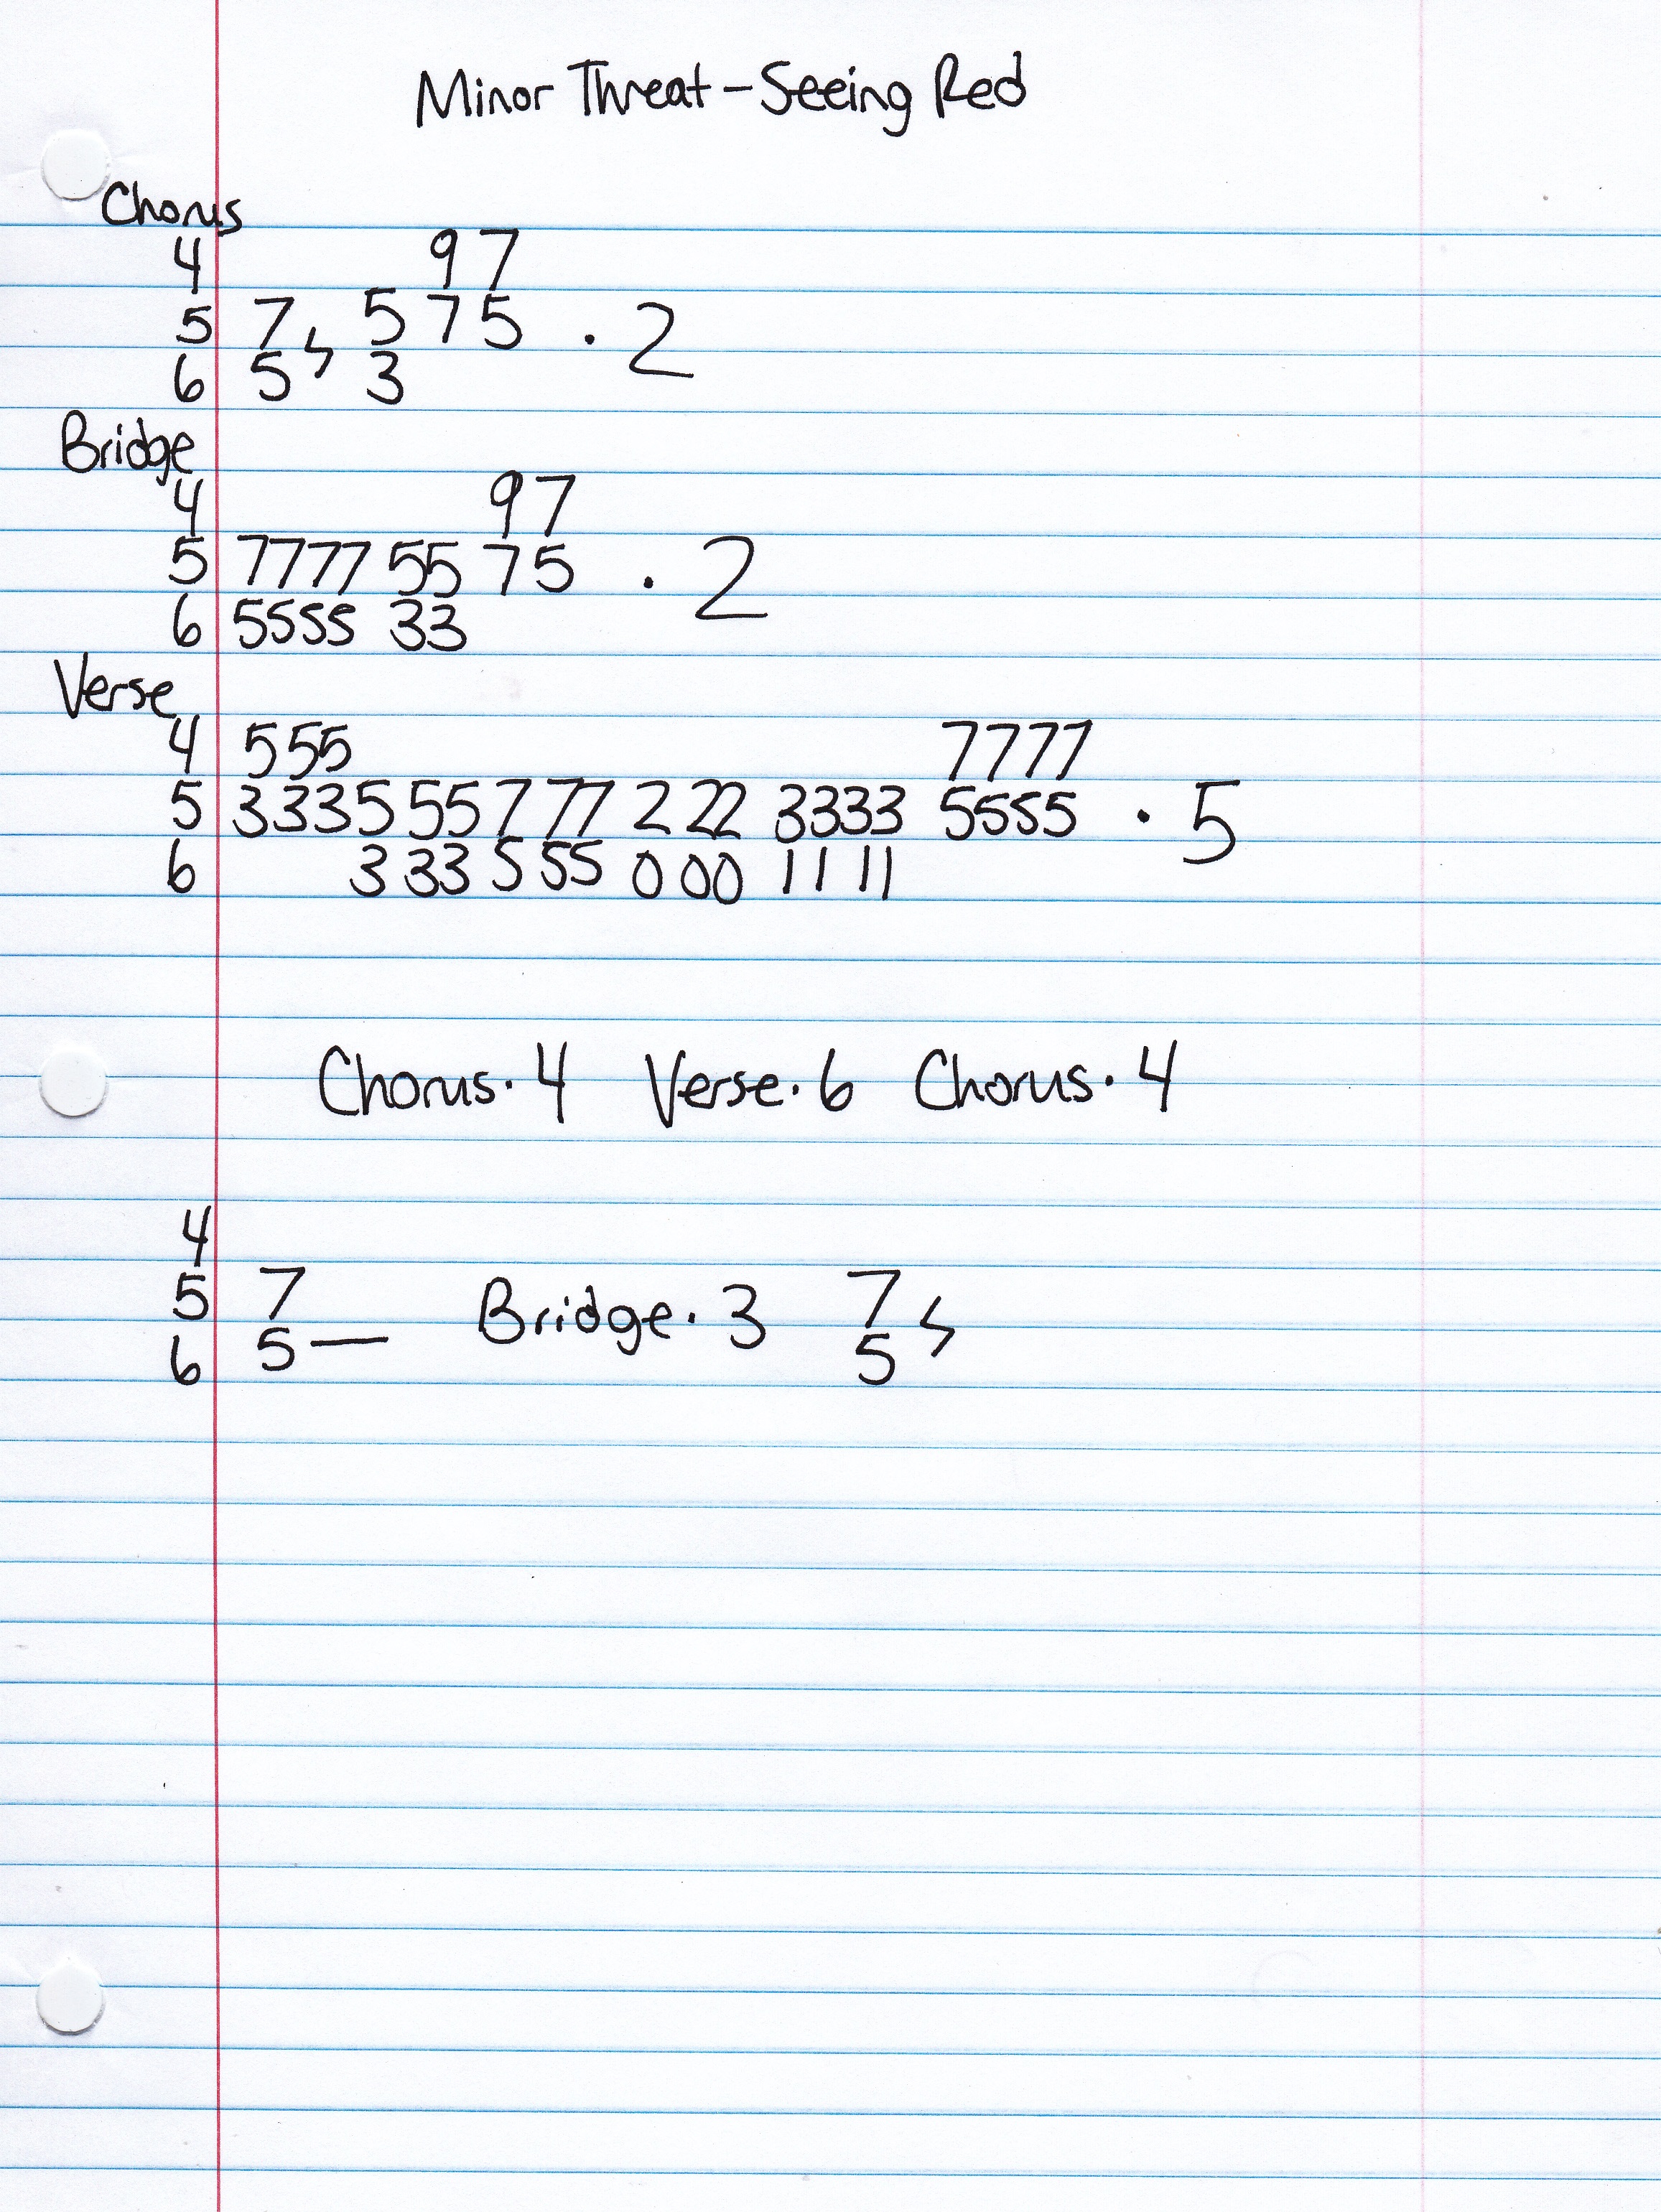 Minor Threat - Seeing Red
Chorus
4 9 7
5 7 5 7 5 . 2
6 5 3
Bridge
4 9 7
5 7777 55 7 5 . 2
6 5555 33
Verse
4 555 7777
5 333 5 55 7 77 2 22 3333 5555 . 5
6 3 33 5 55 0 00 11 11
Chorus · 4 Verse · 6 Chorus · 4
4
5 7 Bridge · 3 7
6 5 — 5